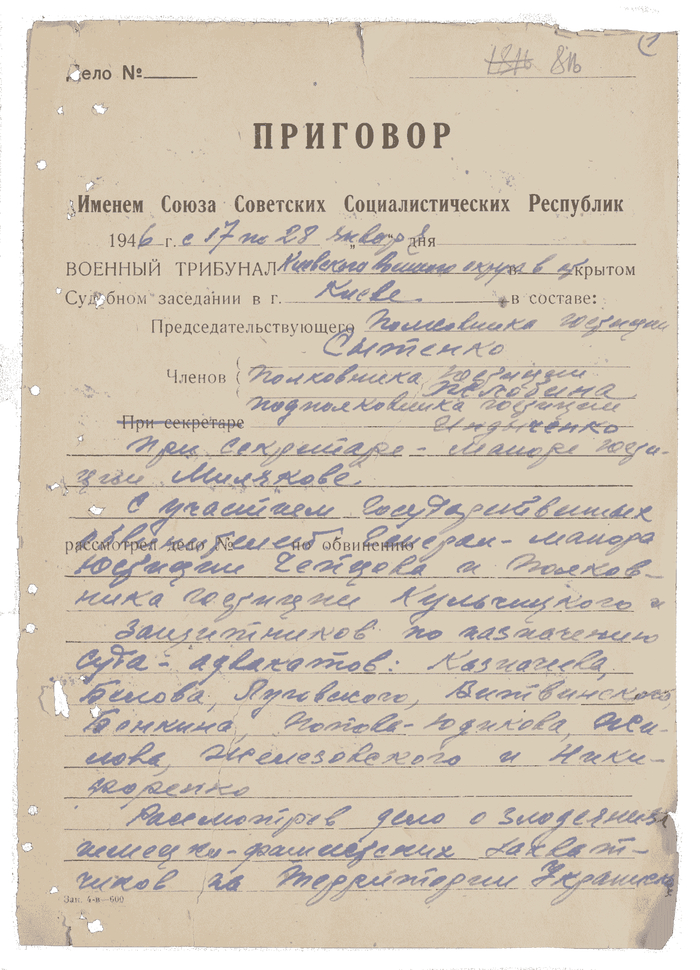 Дело №
1
181б 81б
ПРИГОВОР
Именем Союза Советских Социалистических Республик
1946 г. с 17 по 28 января дня
ВОЕННЫЙ ТРИБУНАЛ Киевского Военного округа в открытом
Судебном заседании в г. Киеве в составе:
Председательствующего Полковника Юстиции
Сытенко
Членов Полковника Юстиции
подполковника юстиции
При секретаре
При секретаре - майоре юсти-
ции Милякове.
С участием Государственных
рассмотрел дело № по обвинению
Генерал-майора
Юстиции Чепцова и Полков-
ника юстиции Кульчицкого и
Защитников по назначению
суда - адвокатов: Казначеева,
Белова, Луговского, Витвинского,
Бенкина, Попова-Юдикова, Жи-
лова, Железовского и Ники-
форенко
Рассмотрев дело о злодеяниях
немецки-фашистских захват-
чиков на Территории Украинск
Зак. 4-и—600